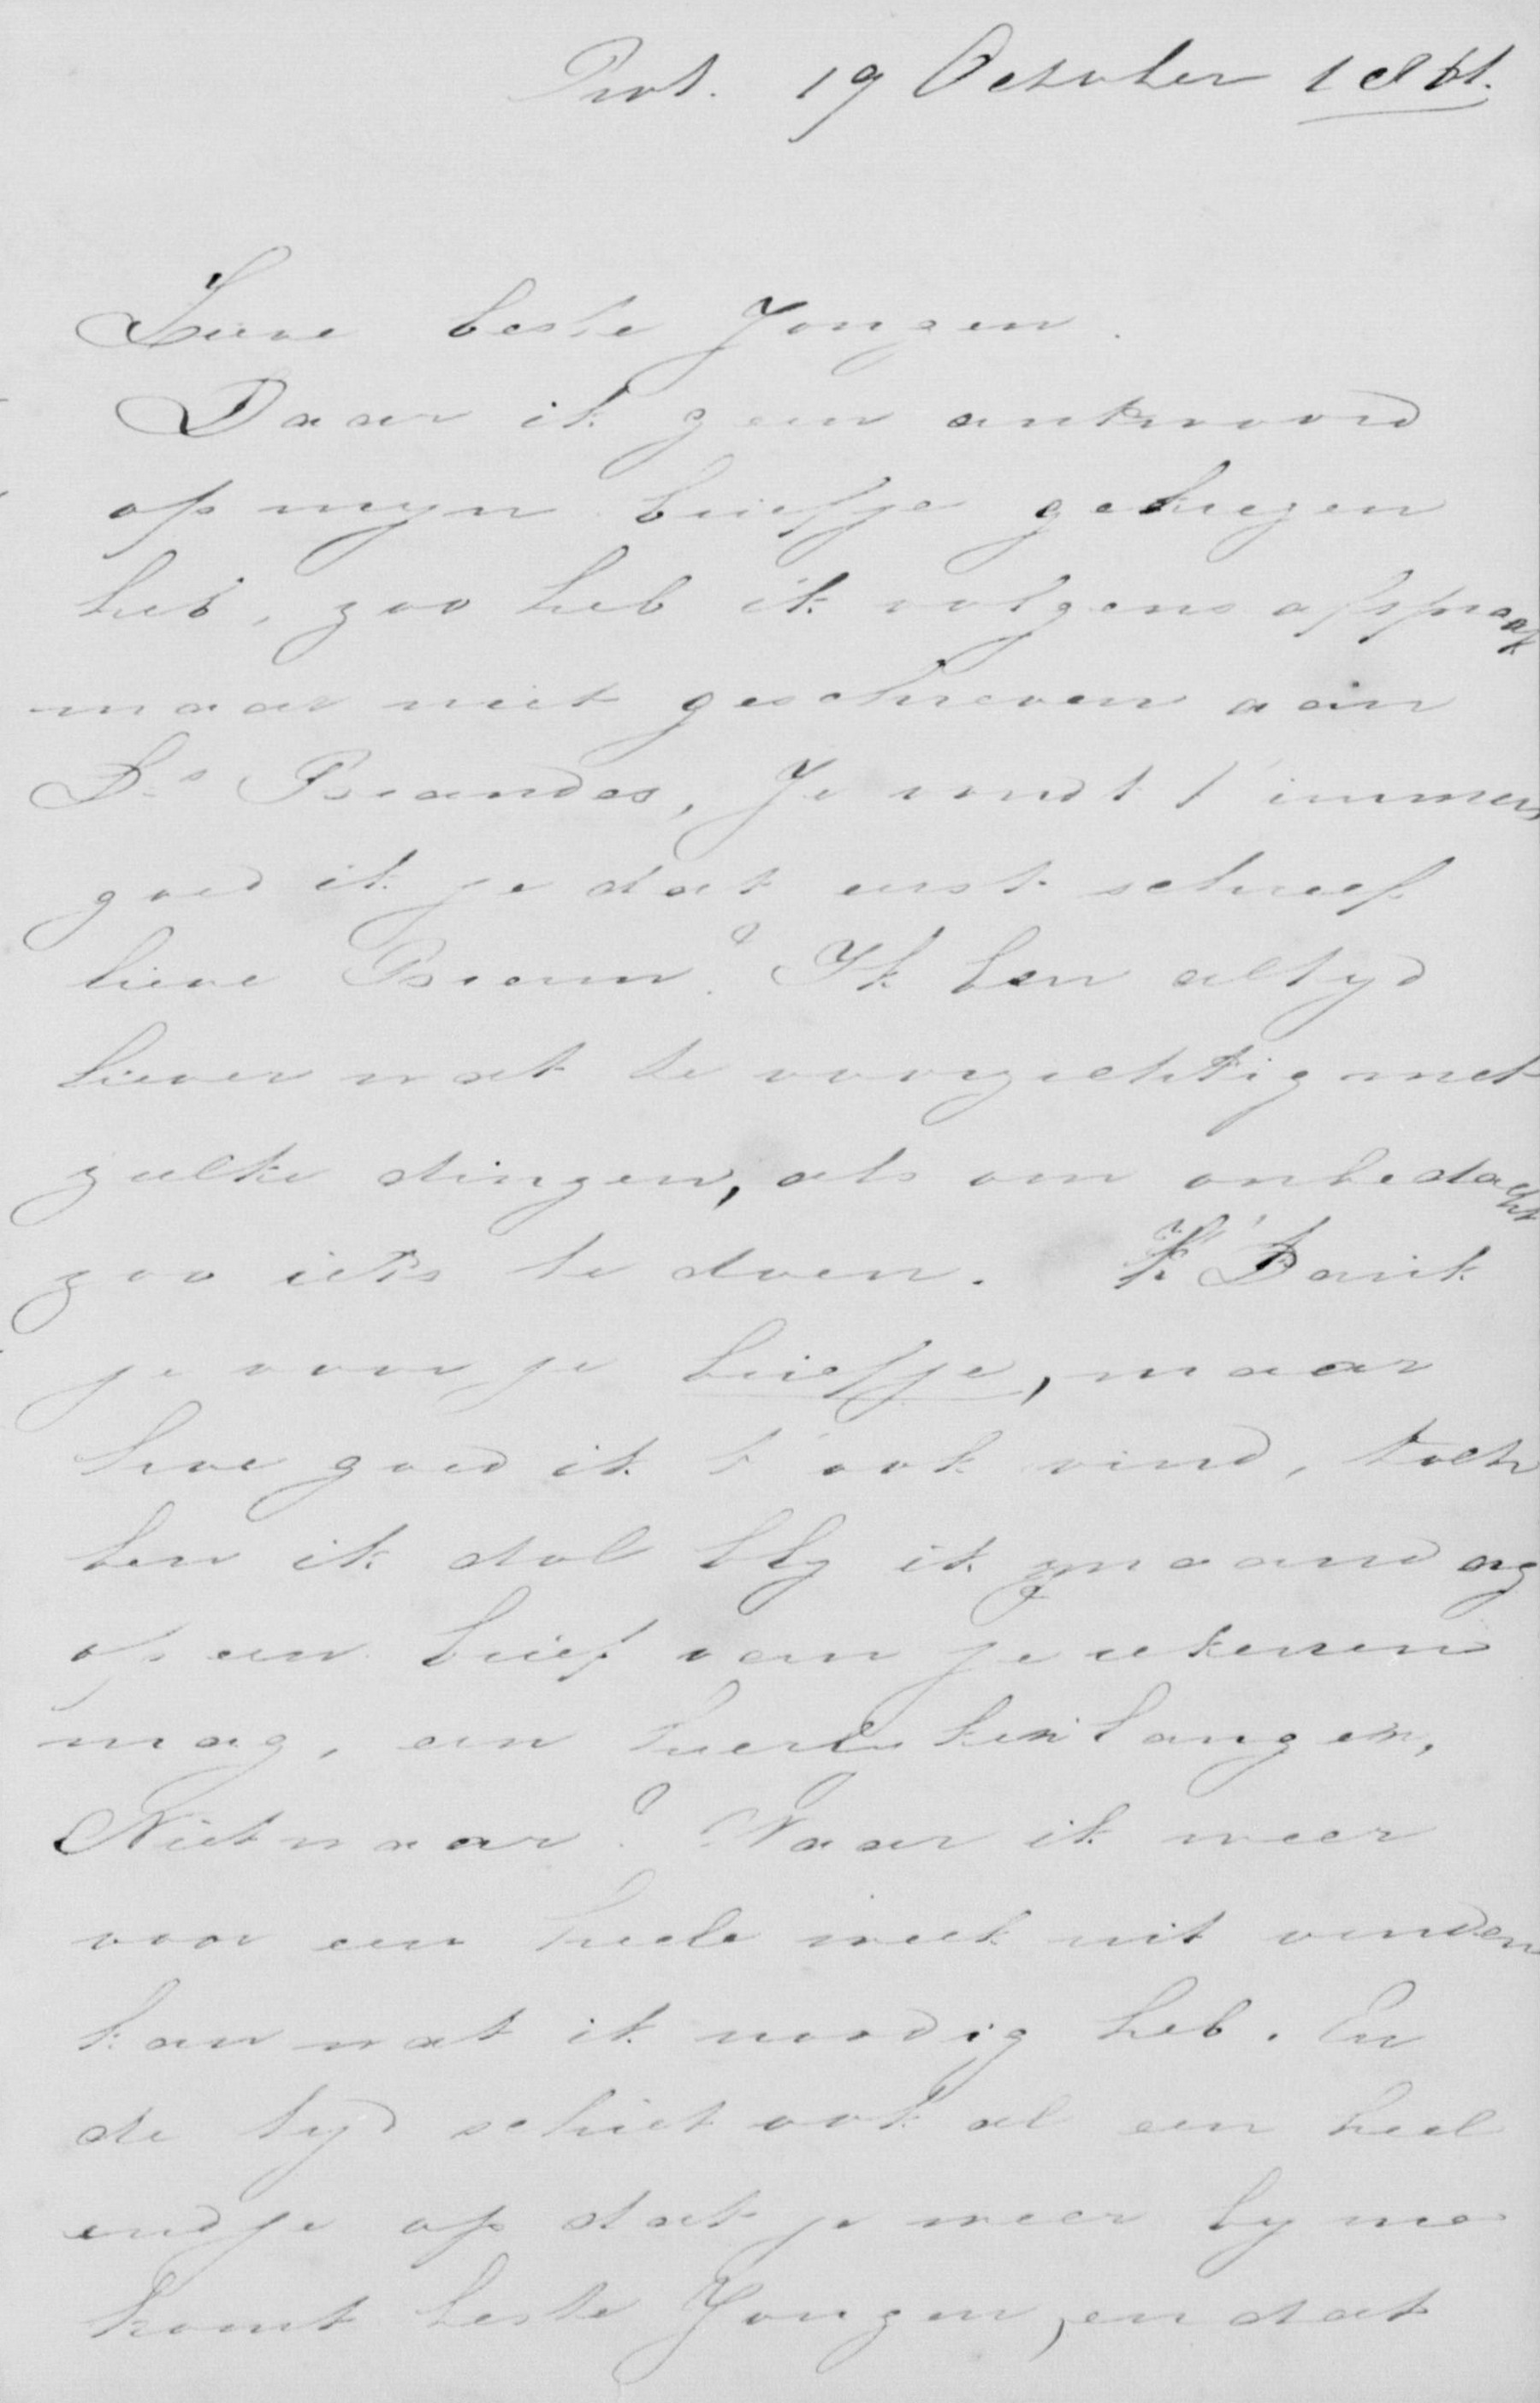 19 October
Lieve beste Jongen.
Daar ik geen antwoord
op myn briefje gekregen
heb, zoo heb ik volgens afspraak
maar niet geschreven aan
Ds Brandes, Je vondt t' immers
goed ik je dat eerst schreef
lieve Bram? Ik ben altyd
liever wat te voorzichtig met
zulke dingen, als om onbedacht
zoo iets te doen. 'k Dank
je voor je briefje, maar
hoe goed ik t' ook vind, toch
ben ik dol bly ik maandag
op een brief van je rekenen
mag, een heele langen,
Niet waar? Waar ik weer
voor een heele week uit vinden
kan wat ik noodig heb. En
de tyd schiet ook al een heel
endje op dat je weer by me
komt beste Jongen, en dat